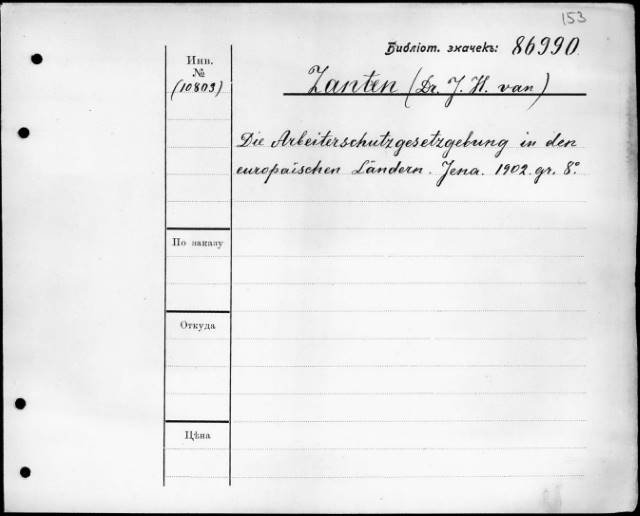 153
Библіот. значекъ: 86990
Инв.
№
(10803)
Zanten (Dr. J. H. van)
Die Arbeiterschutzgesetzgebung in den
europäischen Ländern. Jena. 1902. gr. 8°.
По заказу
Откуда
Цѣна